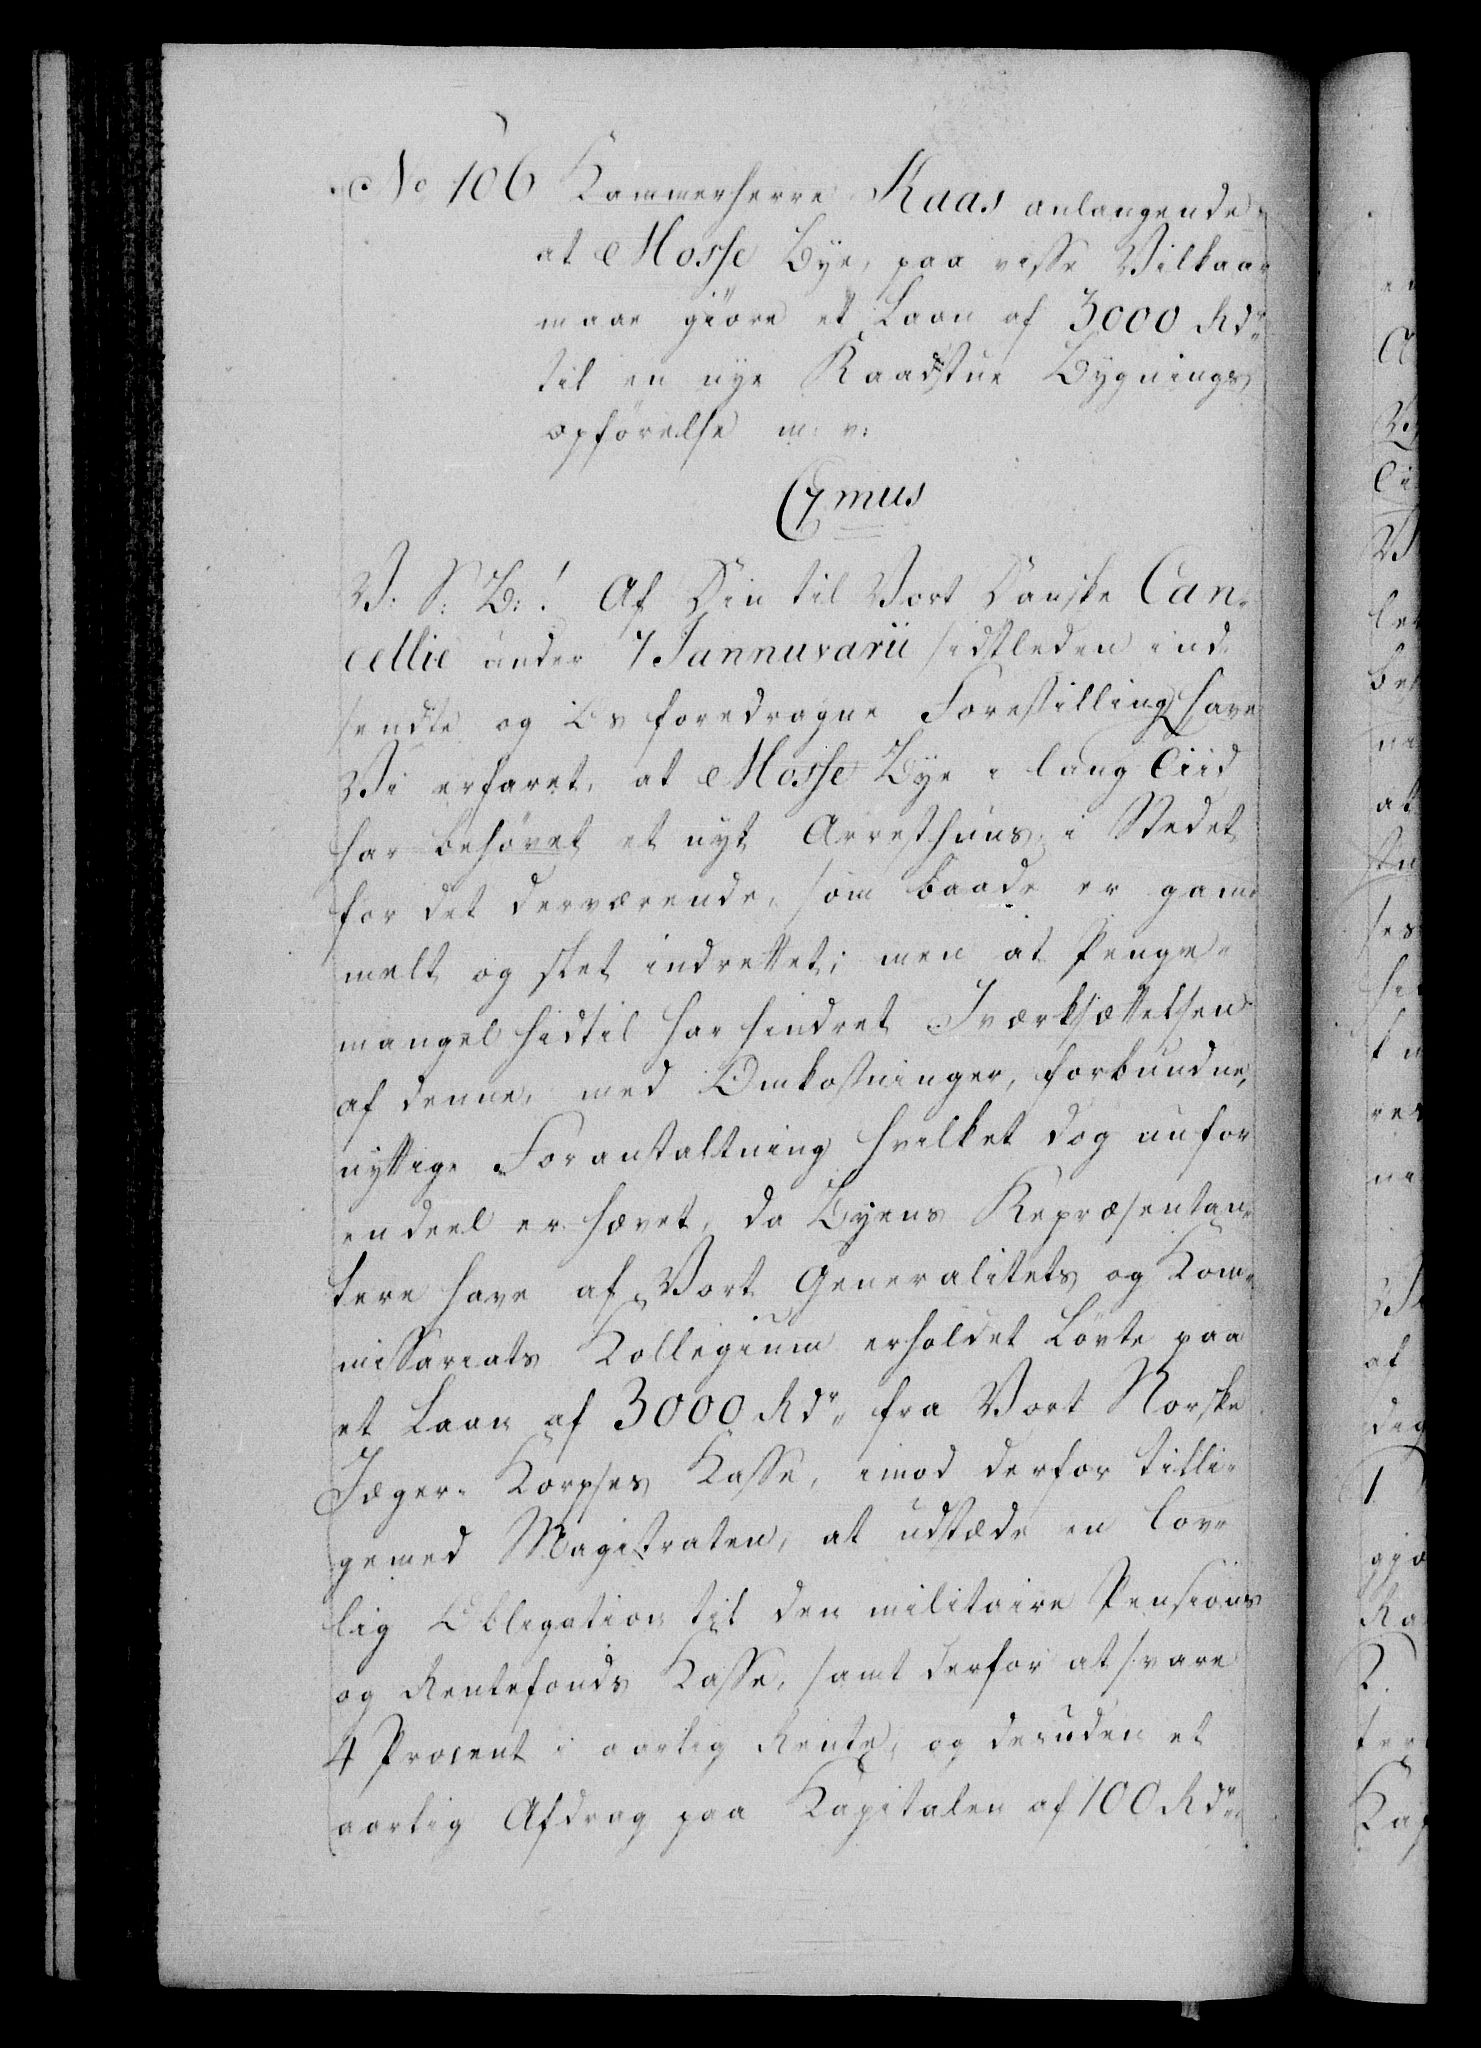 No 106 Kammerherre Kaas anlangende
at Mosse Bye, paa visse Vilkaar
maae giøre et Laan af 3000 Rdr
til en nye Raadstue Bygnings
opførelse m: v:
C7mus
V: S: B:! Af Din til Vort Danske Can-
cellie under 7 Jannuvarii sidstleden ind-
sendte og Os foredragne Forestilling have
Vi erfaret, at Mosse Bye i lang Tiid
har behøvet et nyt Arresthuus i Stedet
for det derværende, som baade er gam-
melt og slet indrettet; men at Penge-
mangel hidtil har hindret Iværksættelsen
af denne, med Omkostninger, forbundne,
nyttige Foranstaltning hvilket dog nu for
en deel er hævet, da Byens Repræsentan-
tere have af Vort Generalitets og Kom-
missariats Kollegium erholdet Løvte paa
et Laan af 3000 Rdr fra Vort Norske
Jæger- Korpses Kasse, imod derfor tilli-
gemed Magistraten, at udstæde en lov-
lig Obligation til den militaire Pensions
og Rentefonds Kasse, samt derfor at svare
4 Procent i aarlig Rente, og desuden et
aarlig Afdrag paa Kapitalen af 100 Rdr